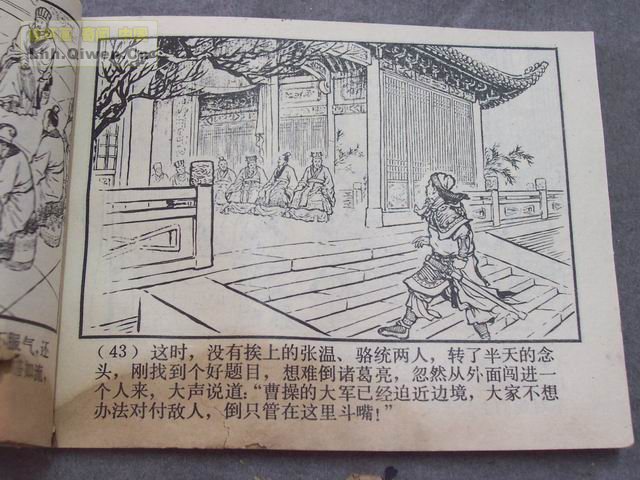 khh.Qiwen.Com
（43）这时，没有挨上的张温、骆统两人，转了半天的念
头，刚找到个好题目，想难倒诸葛亮，忽然从外面闯进一
个人来，大声说道：“曹操的大军已经迫近边境，大家不想
办法对付敌人，倒只管在这里斗嘴！”
气，还
如流，